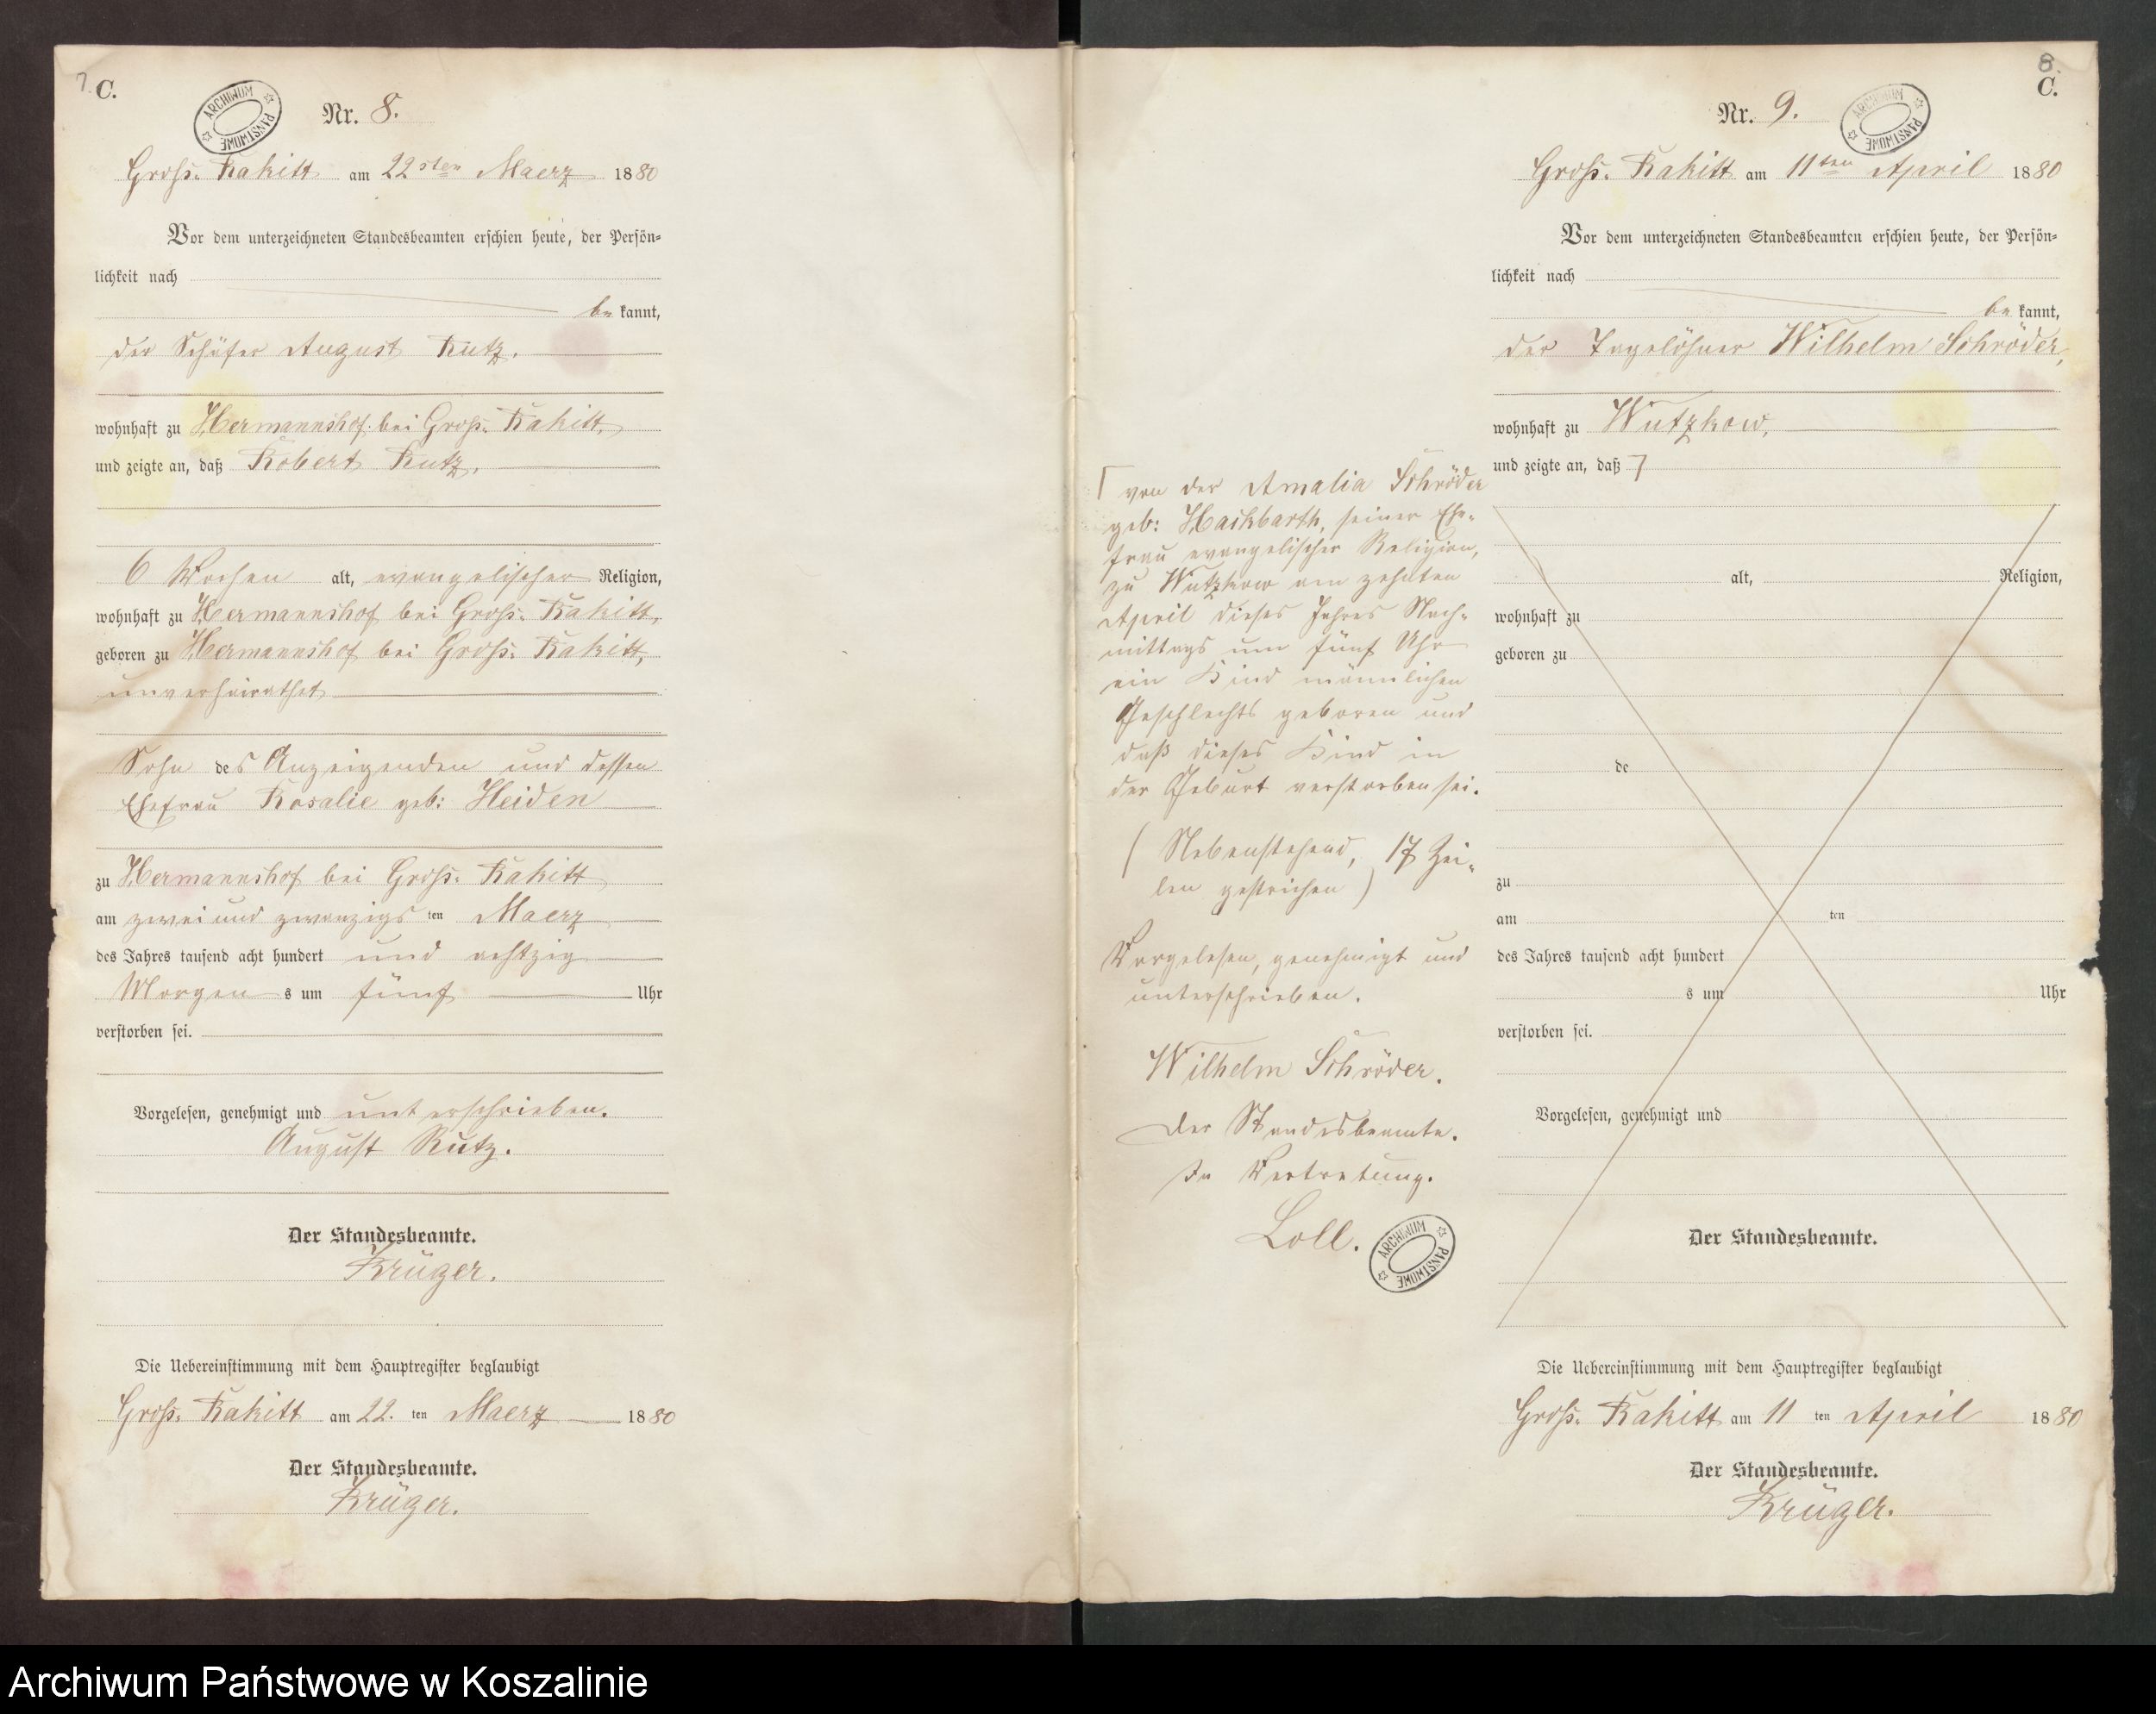 7.
C.
ARCHIWUM PAŃSTWOWE
Nr. 8.
Groß-Rakitt am 22sten Maerz 1880
Vor dem unterzeichneten Standesbeamten erschien heute, der Persön-
lichkeit nach
bekannt,
der Schäfer August Rutz.
wohnhaft zu Hermannshof bei Groß-Rakitt,
und zeigte an, daß Robert Rutz,
6 Wochen alt, evangelischer Religion,
wohnhaft zu Hermannshof bei Groß-Rakitt,
geboren zu Hermannshof bei Groß-Rakitt,
unverheirathet
Sohn des Anzeigenden und dessen
Ehefrau Rosalie geb: Heiden
zu Hermannshof bei Groß-Rakitt
am zwei und zwanzigsten Maerz
des Jahres tausend acht hundert und achtzig
Morgens um fünf Uhr
verstorben sei.
Vorgelesen, genehmigt und unterschrieben.
August Rutz.
Der Standesbeamte.
Krüger.
Die Uebereinstimmung mit dem Hauptregister beglaubigt
Groß-Rakitt am 22.ten Maerz 1880
Der Standesbeamte.
Krüger.
8.
C.
ARCHIWUM PAŃSTWOWE
Nr. 9.
Groß-Rakitt am 11ten April 1880
Vor dem unterzeichneten Standesbeamten erschien heute, der Persön-
lichkeit nach
bekannt,
der Tagelöhner Wilhelm Schröder,
wohnhaft zu Wutzkow,
und zeigte an, daß
von der Amalia Schröder
geb: Hackbarth, seiner Ehe-
frau evangelischer Religion,
zu Wutzkow am zehnten
April dieses Jahres Nach-
mittags um fünf Uhr
ein Kind männlichen
Geschlechts geboren und
daß dieses Kind in
der Geburt verstorben sei.
( Nebenstehend, 17 Zei-
len gestrichen )
Vorgelesen, genehmigt und
unterschrieben.
Wilhelm Schröder.
Der Standesbeamte.
In Vertretung.
Loll.
ARCHIWUM PAŃSTWOWE
alt, Religion,
wohnhaft zu
geboren zu
de
zu
am ten
des Jahres tausend acht hundert
s um Uhr
verstorben sei.
Vorgelesen, genehmigt und
Der Standesbeamte.
Die Uebereinstimmung mit dem Hauptregister beglaubigt
Groß-Rakitt am 11 ten April 1880
Der Standesbeamte.
Krüger.
Archiwum Państwowe w Koszalinie